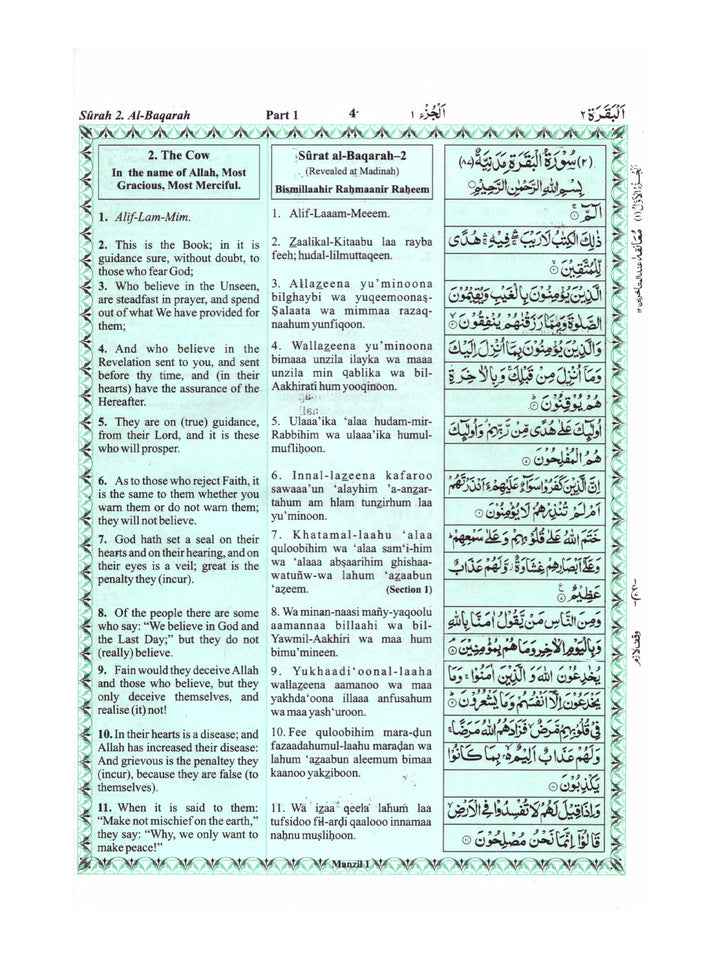 Sûrah 2. Al-Baqarah
Part 1
4
اَلْجُزْء ١
اَلْبَقَرَة ٢
2. The Cow
In the name of Allah, Most
Gracious, Most Merciful.
1. Alif-Lam-Mim.
2. This is the Book; in it is
guidance sure, without doubt, to
those who fear God;
3. Who believe in the Unseen,
are steadfast in prayer, and spend
out of what We have provided for
them;
4. And who believe in the
Revelation sent to you, and sent
before thy time, and (in their
hearts) have the assurance of the
Hereafter.
5. They are on (true) guidance,
from their Lord, and it is these
who will prosper.
6. As to those who reject Faith, it
is the same to them whether you
warn them or do not warn them;
they will not believe.
7. God hath set a seal on their
hearts and on their hearing, and on
their eyes is a veil; great is the
penalty they (incur).
8. Of the people there are some
who say: "We believe in God and
the Last Day;" but they do not
(really) believe.
9. Fain would they deceive Allah
and those who believe, but they
only deceive themselves, and
realise (it) not!
10. In their hearts is a disease; and
Allah has increased their disease:
And grievous is the penaltey they
(incur), because they are false (to
themselves).
11. When it is said to them:
"Make not mischief on the earth,"
they say: "Why, we only want to
make peace!"
Sûrat al-Baqarah–2
(Revealed at Madinah)
Bismillaahir Raḥmaanir Raḥeem
1. Alif-Laaam-Meeem.
2. Z̲aalikal-Kitaabu laa rayba
feeh; hudal-lilmuttaqeen.
3. Allaz̲eena yu’minoona
bilghaybi wa yuqeemoonaṣ-
Ṣalaata wa mimmaa razaq-
naahum yunfiqoon.
4. Wallaz̲eena yu’minoona
bimaaa unzila ilayka wa maaa
unzila min qablika wa bil-
Aakhirati hum yooqinoon.
5. Ulaaa’ika ‘alaa hudam-mir-
Rabbihim wa ulaaa’ika humul-
mufliḥoon.
6. Innal-laz̲eena kafaroo
sawaaa’un ‘alayhim ’a-anz̲ar-
tahum am hlam tunz̲irhum laa
yu’minoon.
7. Khatamal-laahu ‘alaa
quloobihim wa ‘alaa sam‘i-him
wa ‘alaaa abṣaarihim ghishaa-
watuñw-wa lahum ‘az̲aabun
‘az̲eem. (Section 1)
8. Wa minan-naasi mañy-yaqoolu
aamannaa billaahi wa bil-
Yawmil-Aakhiri wa maa hum
bimu’mineen.
9. Yukhaadi‘oonal-laaha
wallaz̲eena aamanoo wa maa
yakhda‘oona illaaa anfusahum
wa maa yash‘uroon.
10. Fee quloobihim mara-ḍun
fazaadahumul-laahu maraḍan wa
lahum ‘az̲aabun aleemum bimaa
kaanoo yakz̲iboon.
11. Wa iz̲aa qeela lahum laa
tufsidoo fil-arḍi qaalooo innamaa
naḥnu muṣliḥoon.
(٢) سُوْرَةُ الْبَقَرَةِ مَدَنِيَّةٌ (٨٧)
بِسْمِ اللهِ الرَّحْمٰنِ الرَّحِيْمِ
الٓمّٓ
ذٰلِكَ الْكِتٰبُ لَا رَيْبَ ۛ فِيْهِ ۛ هُدًى
لِّلْمُتَّقِيْنَ
الَّذِيْنَ يُؤْمِنُوْنَ بِالْغَيْبِ وَيُقِيْمُوْنَ
الصَّلٰوةَ وَمِمَّا رَزَقْنٰهُمْ يُنْفِقُوْنَ
وَالَّذِيْنَ يُؤْمِنُوْنَ بِمَآ اُنْزِلَ اِلَيْكَ
وَمَآ اُنْزِلَ مِنْ قَبْلِكَ وَبِالْاٰخِرَةِ
هُمْ يُوْقِنُوْنَ
اُولٰٓئِكَ عَلٰى هُدًى مِّنْ رَّبِّهِمْ وَاُولٰٓئِكَ
هُمُ الْمُفْلِحُوْنَ
اِنَّ الَّذِيْنَ كَفَرُوْا سَوَآءٌ عَلَيْهِمْ ءَاَنْذَرْتَهُمْ
اَمْ لَمْ تُنْذِرْهُمْ لَا يُؤْمِنُوْنَ
خَتَمَ اللهُ عَلٰى قُلُوْبِهِمْ وَعَلٰى سَمْعِهِمْ
وَعَلٰٓى اَبْصَارِهِمْ غِشَاوَةٌ وَّلَهُمْ عَذَابٌ
عَظِيْمٌ
وَمِنَ النَّاسِ مَنْ يَّقُوْلُ اٰمَنَّا بِاللهِ
وَبِالْيَوْمِ الْاٰخِرِ وَمَا هُمْ بِمُؤْمِنِيْنَ
يُخٰدِعُوْنَ اللهَ وَالَّذِيْنَ اٰمَنُوْا وَمَا
يَخْدَعُوْنَ اِلَّآ اَنْفُسَهُمْ وَمَا يَشْعُرُوْنَ
فِيْ قُلُوْبِهِمْ مَّرَضٌ فَزَادَهُمُ اللهُ مَرَضًا
وَلَهُمْ عَذَابٌ اَلِيْمٌ بِمَا كَانُوْا
يَكْذِبُوْنَ
وَاِذَا قِيْلَ لَهُمْ لَا تُفْسِدُوْا فِي الْاَرْضِ
قَالُوْٓا اِنَّمَا نَحْنُ مُصْلِحُوْنَ
وقف لازم
Manzil 1